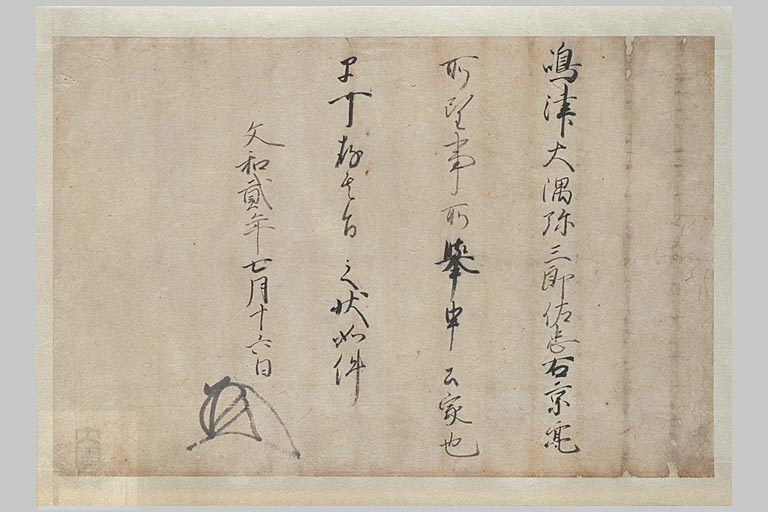 嶋津大隅弥三郎佐忠右京亮
所望事所挙申公家也
早可存其旨之状如件
文和貳年七月十六日